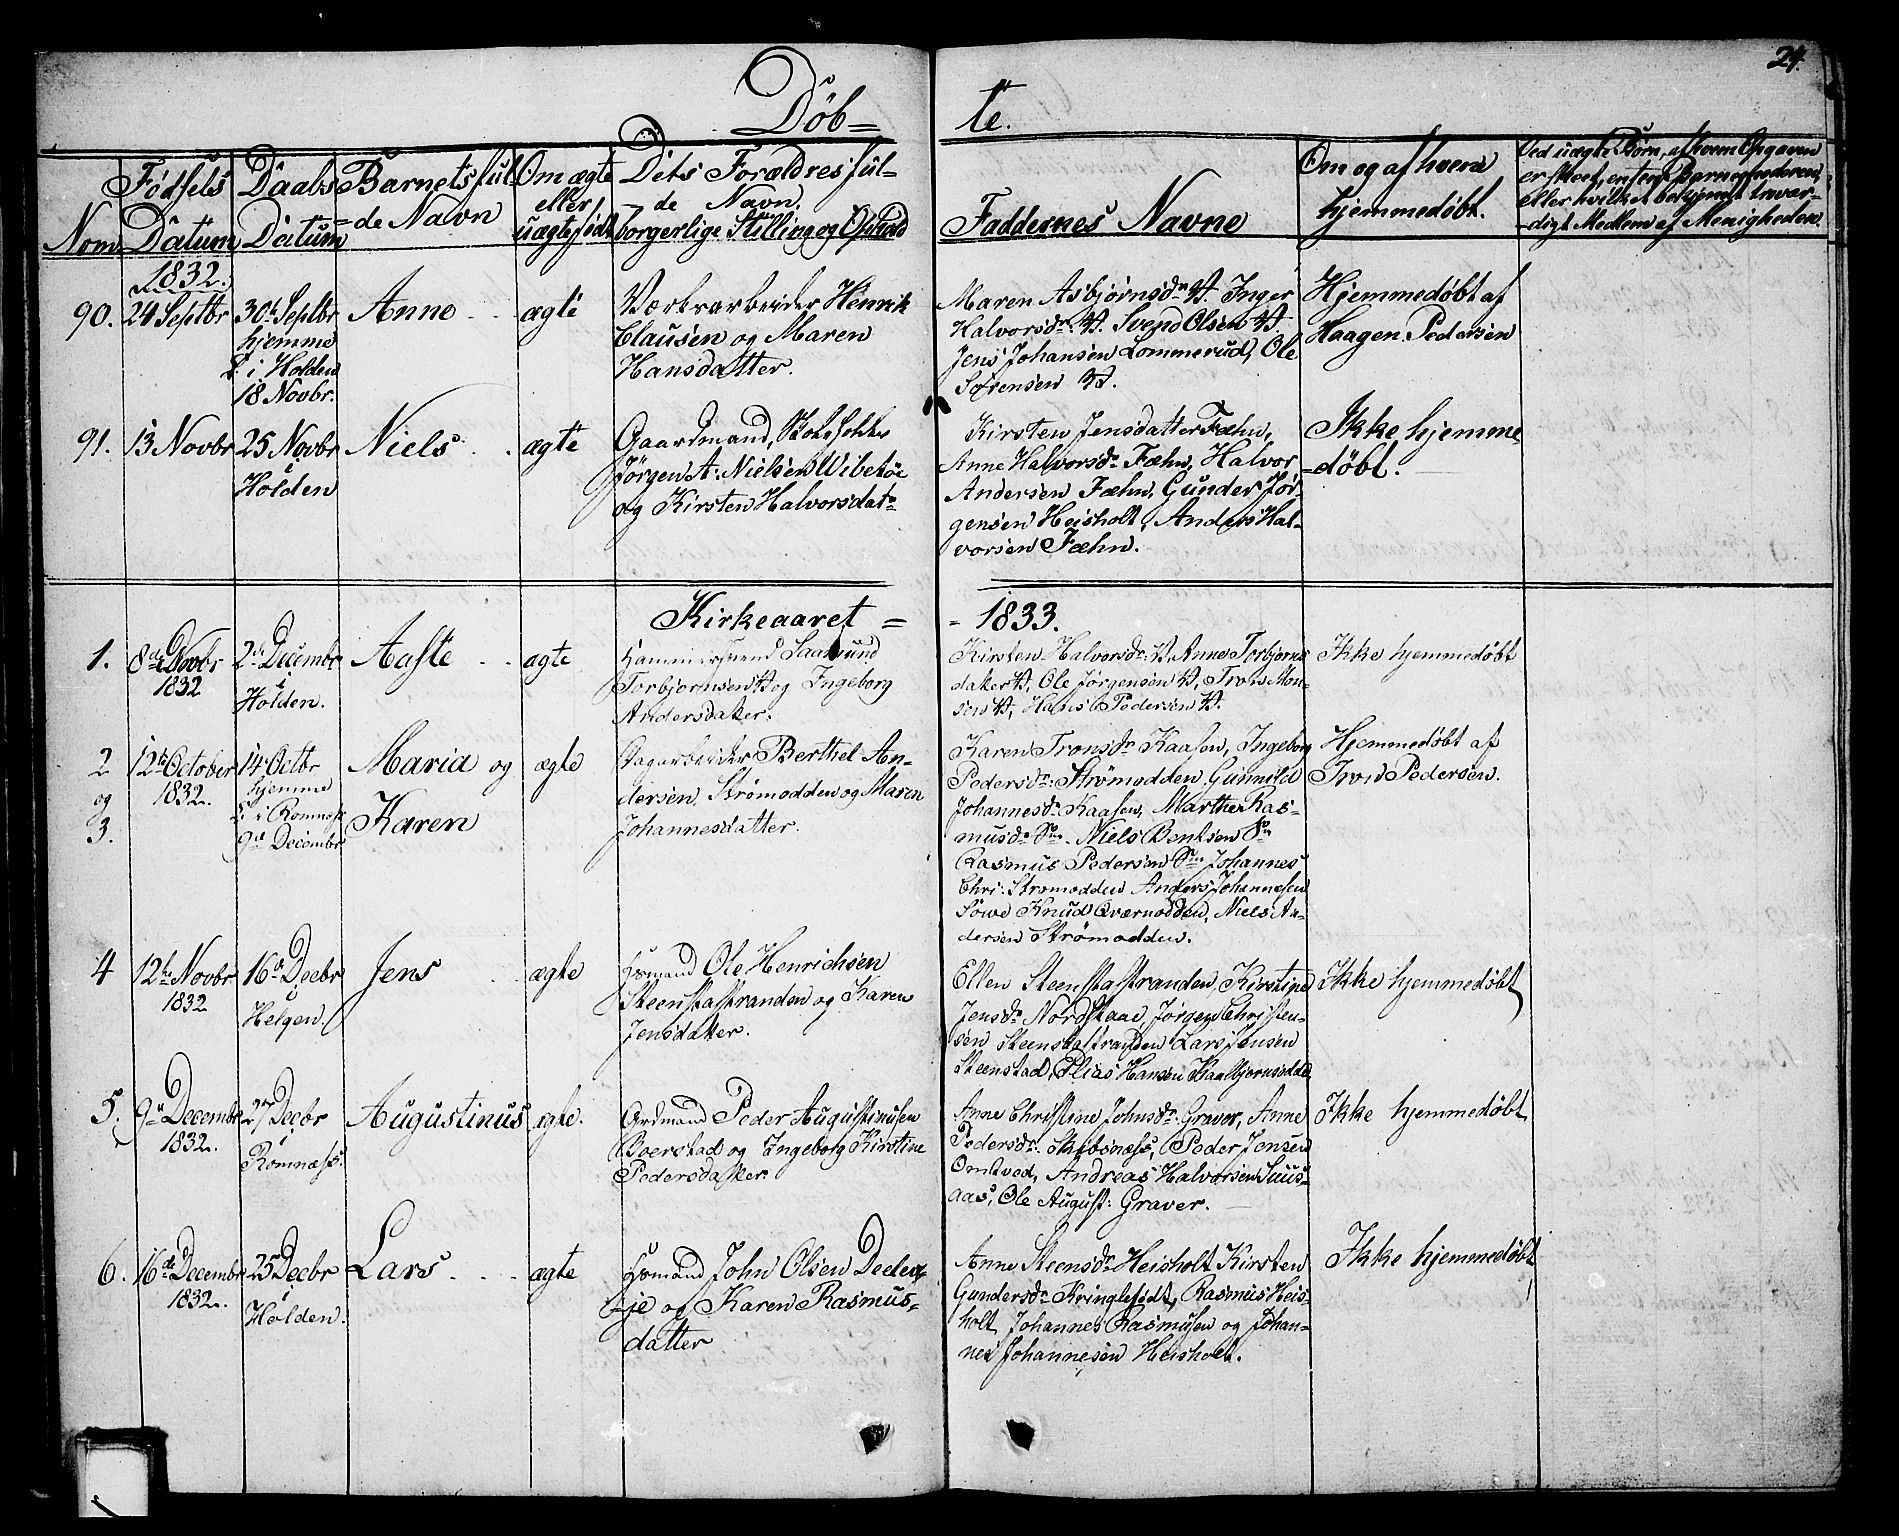 24.
Döb= te.
Nom
Födsels Datum
Daabs Datum
Barnets ful=
=de Navn
Om ægte
eller
uægtefödt
Dets Forældres ful=
=de Navn,
borgerlige Stilling og Ophold
Faddernes Navne
Om og af hvem
hjemmedöbt.
Ved uægte Börn, af hvem Opgaven
er skeet, enten Barnemoderen,
eller hvilket bekjendt trover=
=digt Medlem af Menigheden.
1832.
90. 24 Septbr
30te Septbr
hjemme
i Holden
18 Novbr.
Anne
ægte
Værksarbeider Henrik
Clausen og Maren
Hansdatter.
Maren Asbjörnsdr V. Inger
Halvorsdr: V. Svend Olsen V.
Jens Johansen Lommerud, Ole
Sörensen V.
Hjemmedöbt af
Haagen Pedersen
91. 13 Novbr
25 Novbr
i
Holden
Niels
ægte
Gaardmand,
Jörgen A: Nielsen Vibetöe
og Kirsten Halvorsdatr
Kirsten Jensdatter Fæhn,
Anne Halvorsdr Fæhn, Halvor
Andersen Fæhn, Gunder Jör=
gensen Heisholt, Anders Hal=
vorsen Fæhn.
Ikke hjemme
=döbt.
Kirkeaaret = = 1833.
1. 8de Novbr
1832
2den Decembr
i
Holden.
Aaste
ægte
Hammersmend Saamund
Torbjornsen V og Ingeborg
Andersdatter.
Kirsten Halvorsdr: V. Anne Torbjorns
datter V, Ole Jörgensen V, Trons Mon=
sen V, Hans Pedersen V.
Ikke hjemmedöbt
2
og
3.
12te October
1832.
14 Octbr
hjemme
i Romnæs
9de Decembr
Maria og
Karen
ægte
Dagarbeider Berthel An=
dersen, Strömodden og Maren
Johannesdatter.
Karen Tronsdr Kaasen, Ingeborg
Pedersdr: Strömodden, Gunnild
Johannesdr Kaasen, Marthe Ras=
musdr Niels Bentsen
Rasmus Pedersen Johannes
Chri: Stromodden Anders Johannesen
Söwe Knud Qværnodden, Niels An=
dersen Strömodden.
Hjemmedöbt af
Trond Pedersen.
4 12te Novbr
1832
16de Decbr
i
Helgen
Jens
ægte
Huusmand Ole Henrichsen
Steenstastranden og Karen
Jensdatter.
Ellen Steenstastranden, Kirstine
Jensdr Nordstaae, Jörgen Christen=
sen Steenstastranden Lars Jensen
Steenstad, Elias Hansen
Ikke hjemmedöbt
5. 9de Decembr
1832.
27 Decbr
i
Romnæss.
Augustinus
ægte.
Grdmand Peder Augustinusen
Boerstad og Ingeborg Kirstine
Pedersdatter
Anne Christine Johnsdr. Graver, Anne
Pedersdr. Skibsnæss, Peder Jensen
Omtved, Andreas Halvorsen Suus=
aas, Ole August: Graver.
Ikke hjemmedöbt
6. 16de Decembr
1832.
25 Decbr
i
Holden.
Lars
ægte
Huusmand John Olsen Deelen=
=je og Karen Rasmus=
datter
Anne Steensdr Heisholt Kirsten
Gundersdr Kringlefödt, Rasmus Heis=
holt, Johannes Rasmusen og Johan=
nes Johannesen Heisholt.
Ikke hjemmedöbt